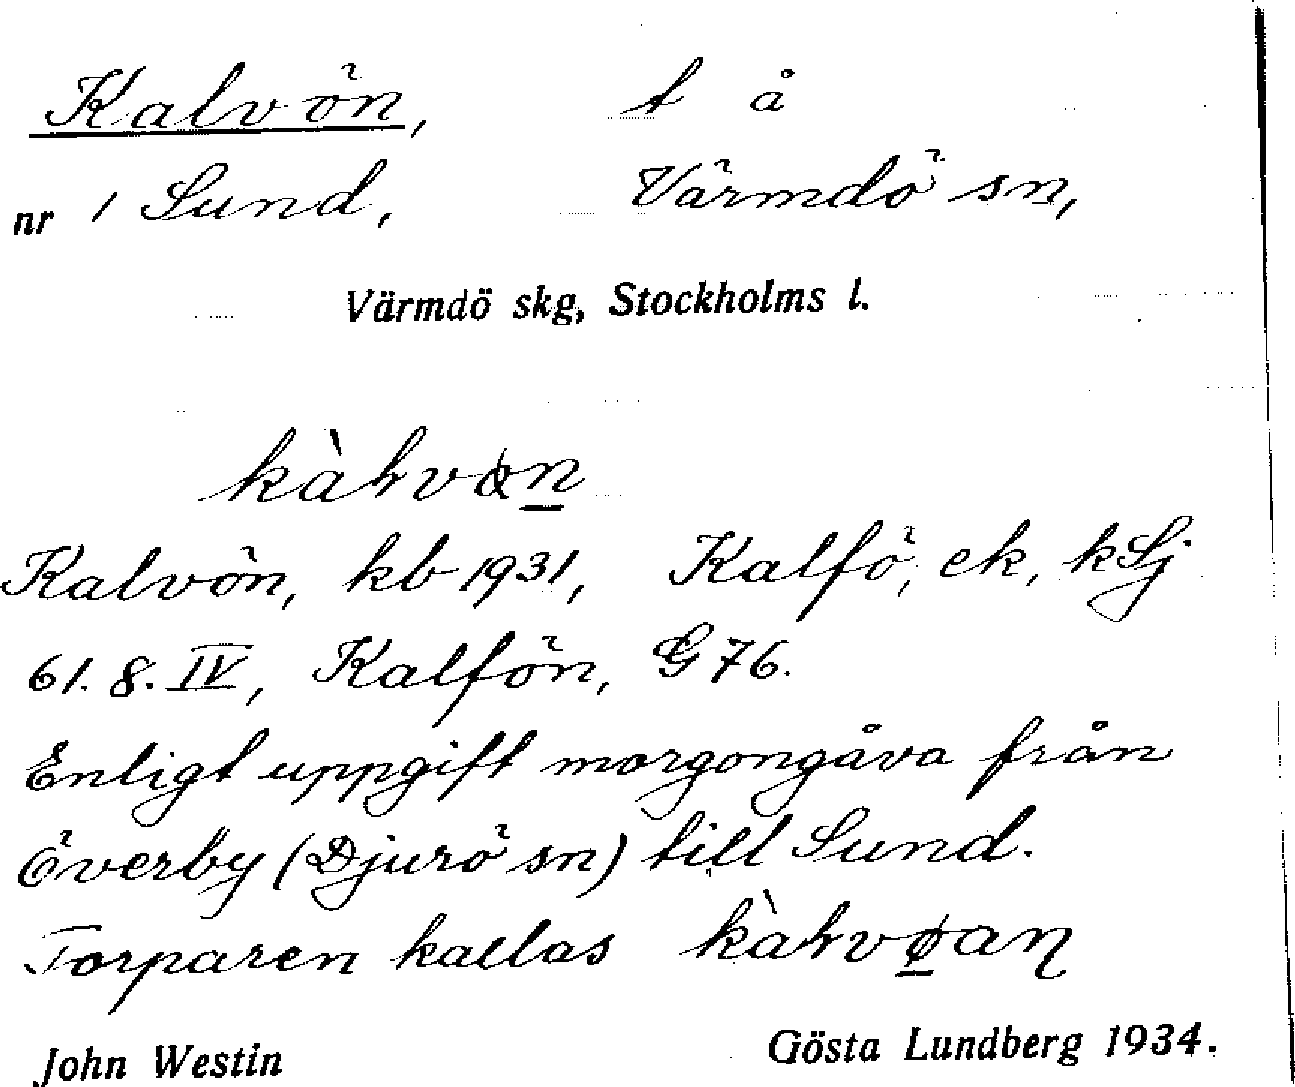 Kalvön, t å
nr 1 Sund, Värmdö sn,
Värmdö skg, Stockholms l.
Kalvön, kb 1931, Kalfö, ek, kSj
61.8.IV, Kalfön, G76.
Enligt uppgift morgongåva från
Överby (Djurö sn) till Sund.
Torparen kallas
John Westin Gösta Lundberg 1934.